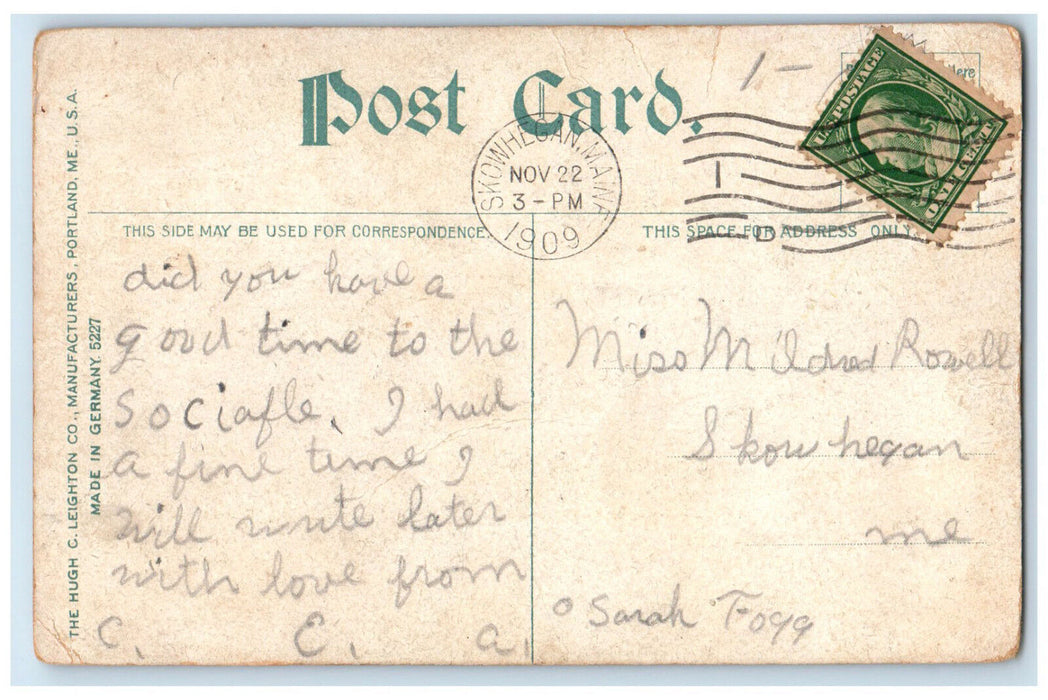 Post Card.
1-
SKOWHEGAN, MAINE
NOV 22
3-PM
1909
U.S. POSTAGE
ONE CENT
THIS SIDE MAY BE USED FOR CORRESPONDENCE.
THIS SPACE FOR ADDRESS ONLY
did you have a
good time to the
Sociafle. I had
a fine time I
will write later
with love from
C. E. a.
Miss Mildred Rowell
Skowhegan
me
o Sarah Fogg
THE HUGH C. LEIGHTON CO., MANUFACTURERS, PORTLAND, ME., U.S.A.
MADE IN GERMANY. 5227